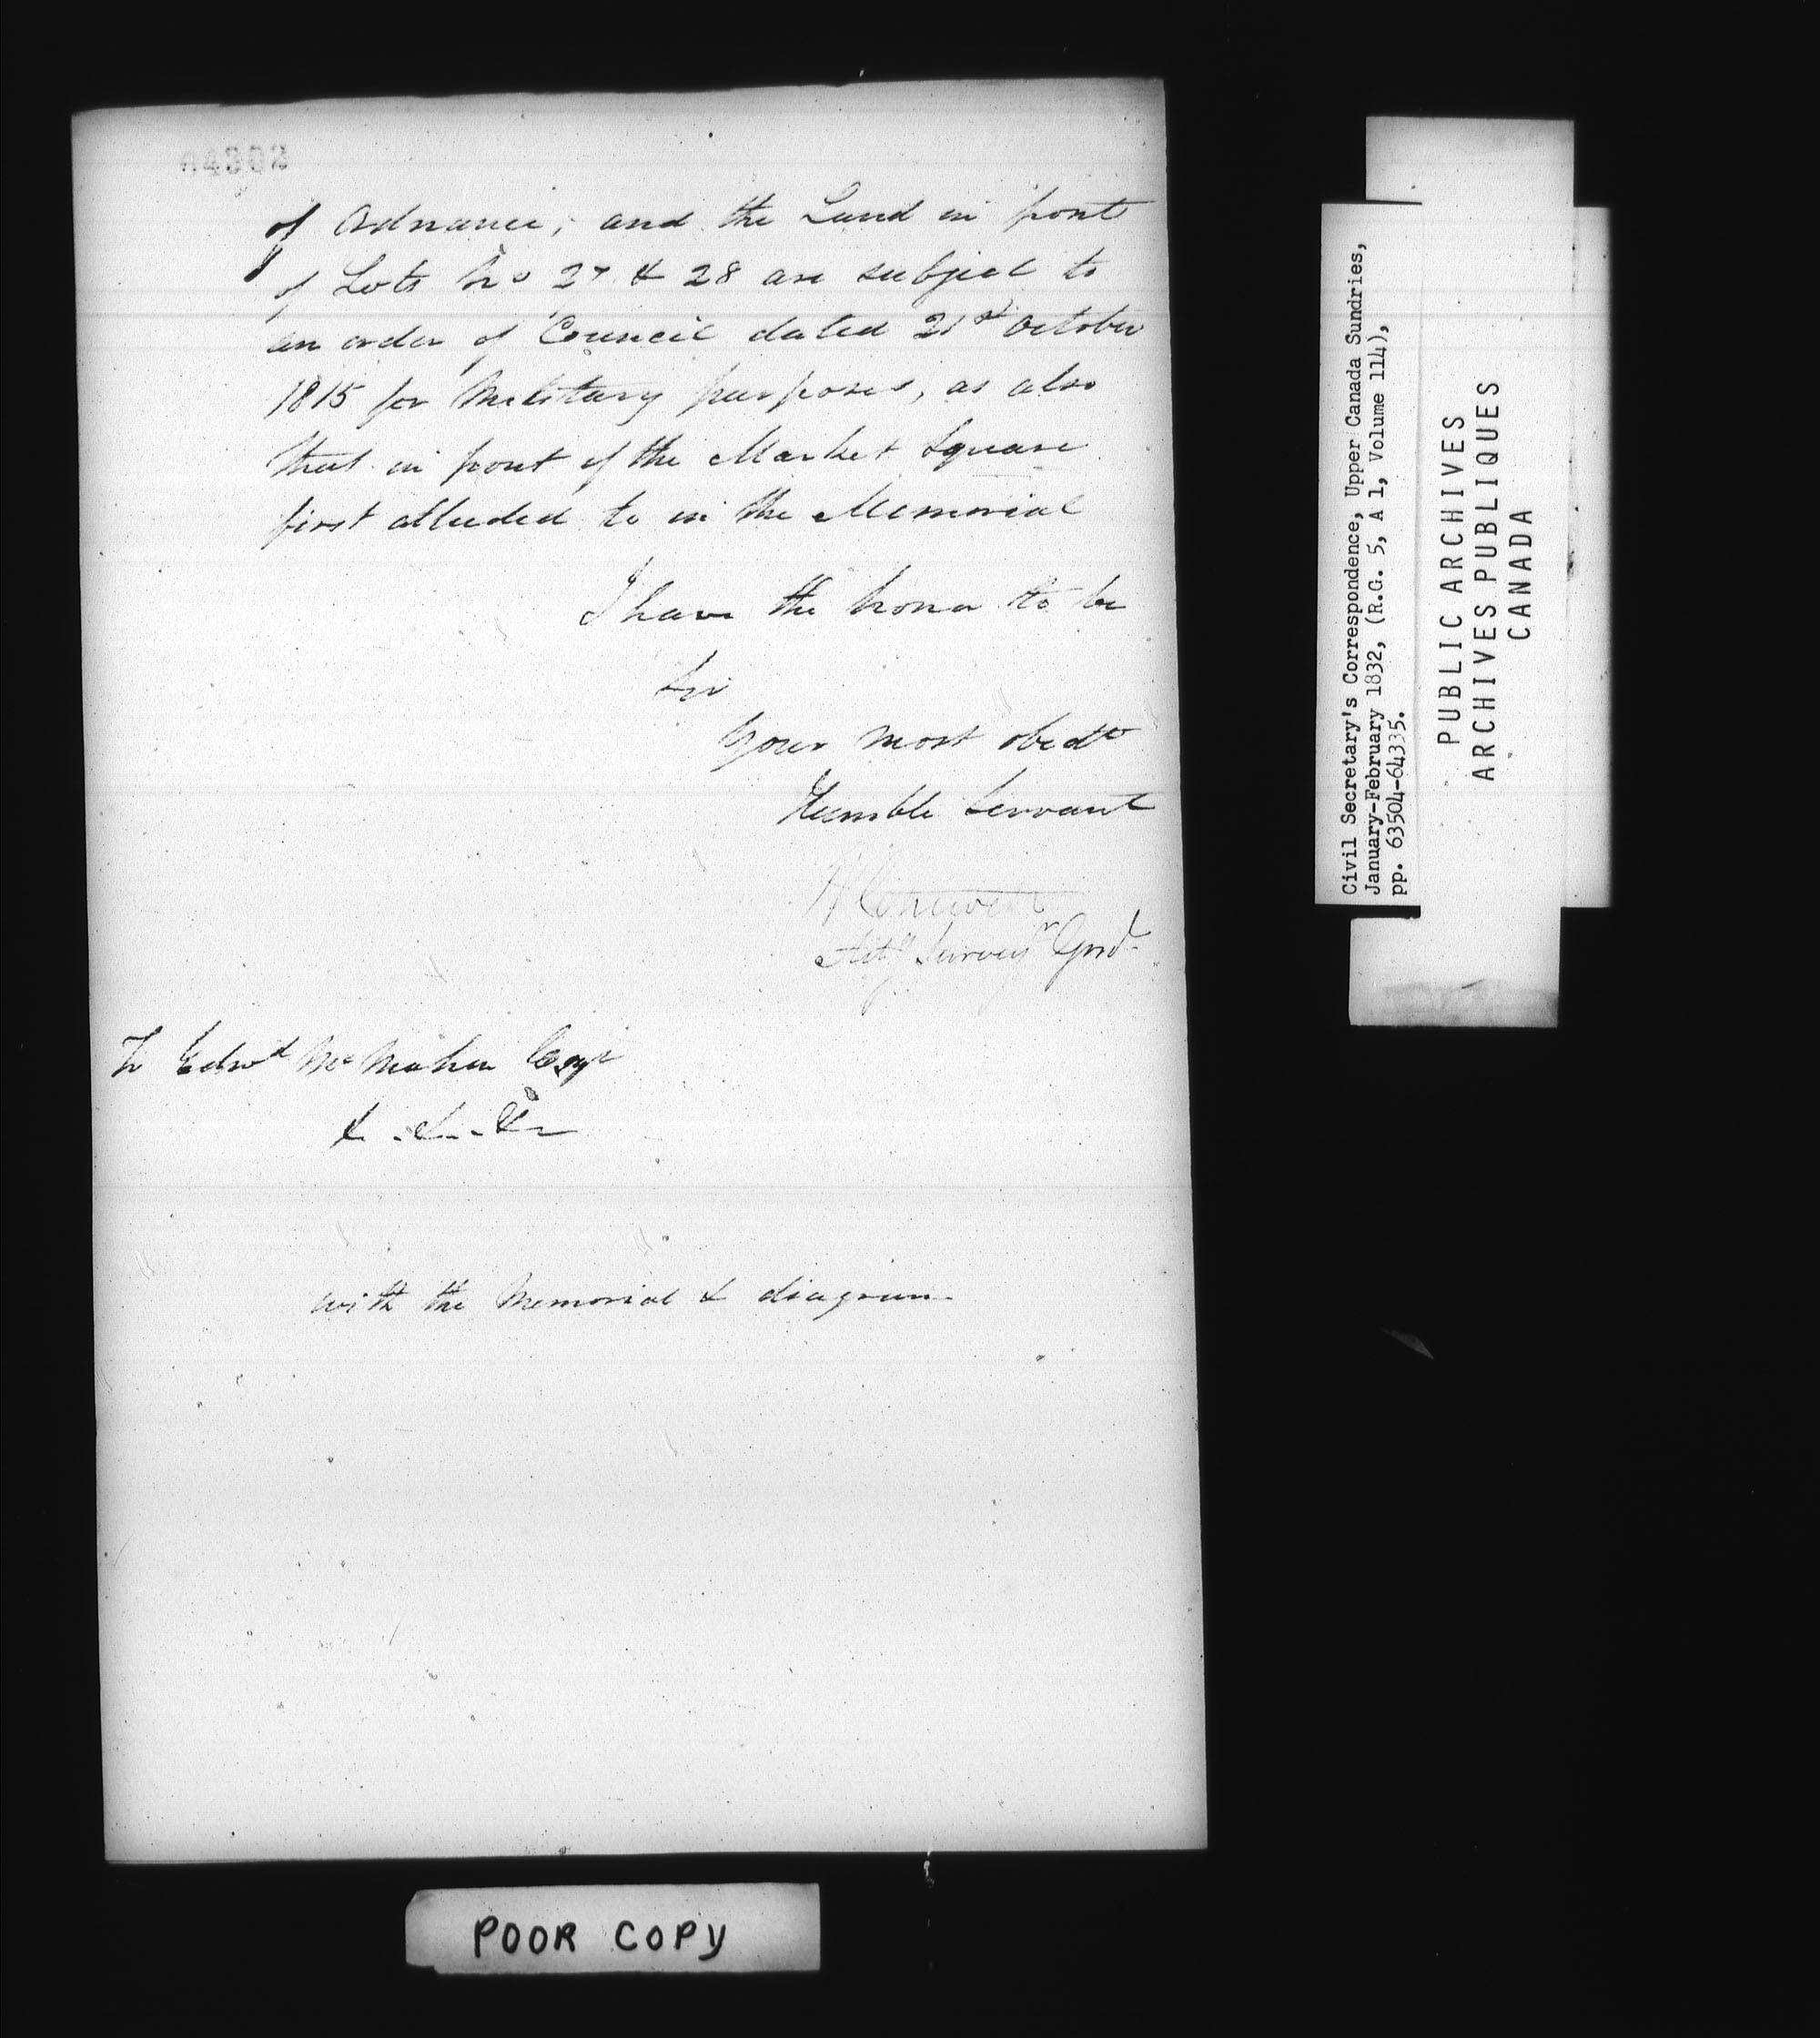 of Ordnance; and the Land in front
of Lots No 27 & 28 are subject to
an order of Council dated 21st October
1815 for Military purposes, as also
that in front of the Market Square
first alluded to in the Memorial
I have the honor to be
Sir
Your most obedt
Humble Servant
Actg Surveyr Genl
To Edwd McMahon Esqr
&c &c &c
with the Memorial & diagram
POOR COPY
Civil Secretary's Correspondence, Upper Canada Sundries,
January-February 1832, (R.G. 5, A 1, Volume 114),
pp. 63504-64335.
PUBLIC ARCHIVES
ARCHIVES PUBLIQUES
CANADA